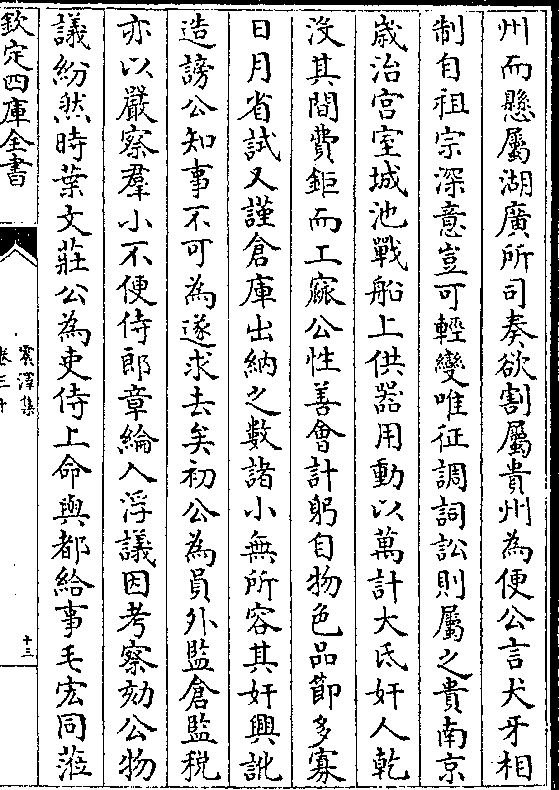 州而懸屬湖廣所司奏欲割屬貴州為便公言犬牙相
制自祖宗深意豈可輕變唯征調詞訟則屬之貴南京
歲治宮室城池戰船上供器用動以萬計大氐奸人乾
沒其間費鉅而工窳公性善會計躬自物色品節多寡
日月省試又謹倉庫出納之數諸小無所容其奸興訛
造謗公知事不可為遂求去矣初公為員外監倉監稅
亦以嚴察羣小不便侍郎章綸入浮議因考察劾公物
議紛然時葉文莊公為吏侍上命與都給事毛宏同蒞
欽定四庫全書
震澤集
卷三十
十三